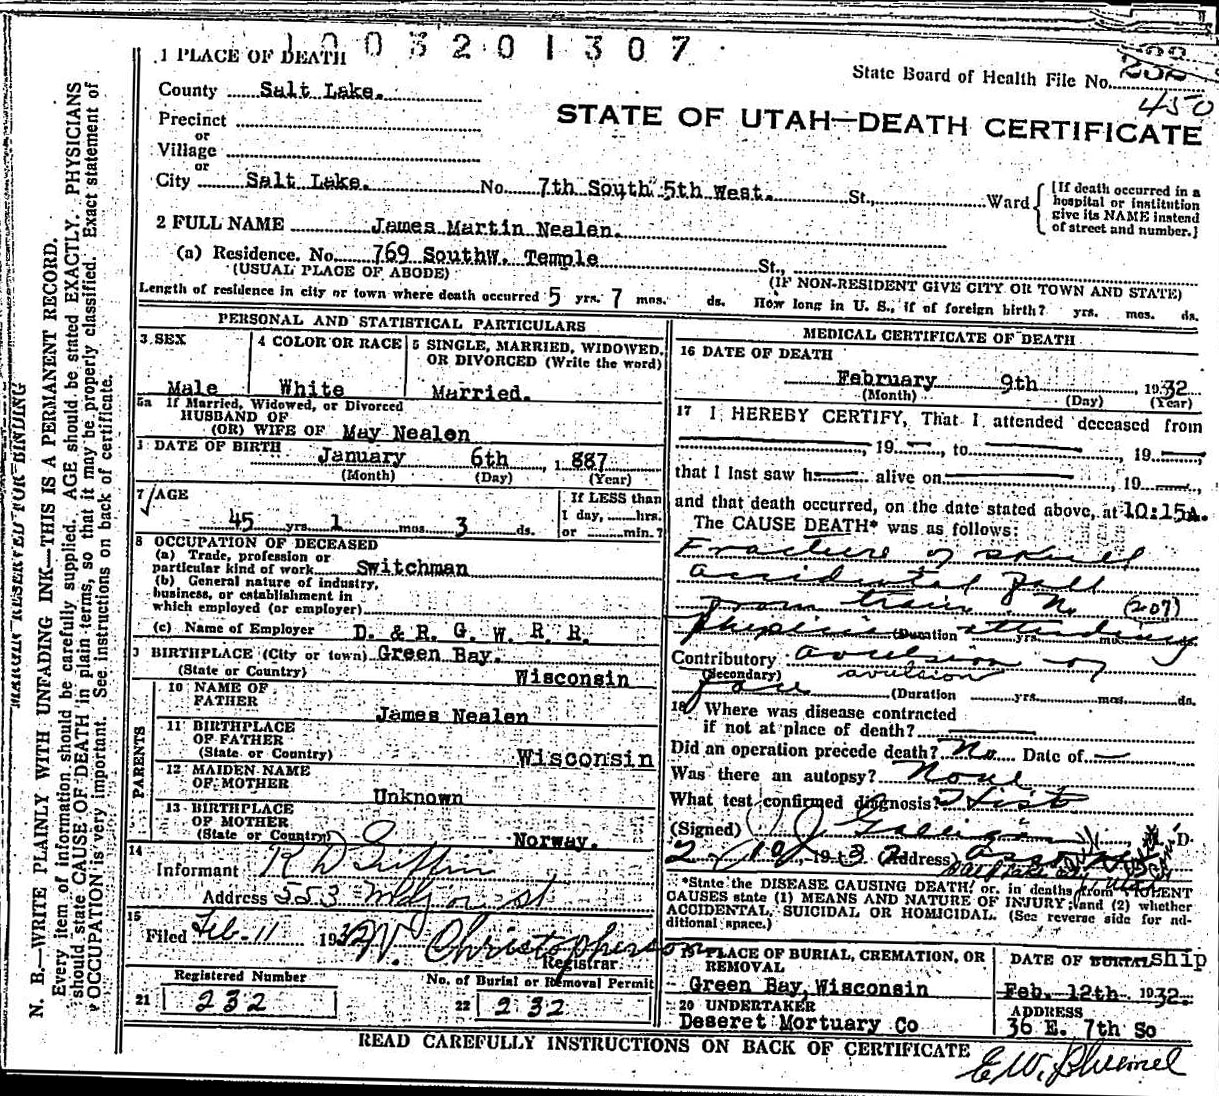 1003201307
1 PLACE OF DEATH
State Board of Health File No. 232
450
County Salt Lake.
STATE OF UTAH—DEATH CERTIFICATE
Precinct
or
Village
or
City Salt Lake. No. 7th South 5th West. St., Ward
[If death occurred in a
hospital or institution
give its NAME instead
of street and number.]
2 FULL NAME James Martin Nealen.
(a) Residence. No. 769 SouthW. Temple St.,
(USUAL PLACE OF ABODE) (IF NON-RESIDENT GIVE CITY OR TOWN AND STATE)
Length of residence in city or town where death occurred 5 yrs. 7 mos. ds. How long in U. S., if of foreign birth? yrs. mos. ds.
PERSONAL AND STATISTICAL PARTICULARS
3 SEX
Male
4 COLOR OR RACE
White
5 SINGLE, MARRIED, WIDOWED,
OR DIVORCED (Write the word)
Married.
5a If Married, Widowed, or Divorced
HUSBAND OF
(OR) WIFE OF May Nealen
DATE OF BIRTH
January 6th, 1887
(Month) (Day) (Year)
7 AGE
45 yrs. 1 mos. 3 ds.
If LESS than
1 day, hrs.
or min.?
8 OCCUPATION OF DECEASED
(a) Trade, profession or
particular kind of work Switchman
(b) General nature of industry,
business, or establishment in
which employed (or employer)
(c) Name of Employer D. & R. G. W. R. R.
9 BIRTHPLACE (City or town) Green Bay.
(State or Country) Wisconsin
PARENTS
10 NAME OF
FATHER James Nealen
11 BIRTHPLACE
OF FATHER
(State or Country) Wisconsin
12 MAIDEN NAME
OF MOTHER Unknown
13 BIRTHPLACE
OF MOTHER
(State or Country) Norway.
14
Informant R D Giffin
Address 553
15
Filed Feb-11 1932 W. Christopherson
Registrar.
Registered Number
21 232
No. of Burial or Removal Permit
22 232
MEDICAL CERTIFICATE OF DEATH
16 DATE OF DEATH
February 9th 1932
(Month) (Day) (Year)
17 I HEREBY CERTIFY, That I attended deceased from
, 19 , to , 19 ,
that I last saw h alive on , 19 ,
and that death occurred, on the date stated above, at 10:15A.
The CAUSE DEATH* was as follows:
Fracture of skull
accidental fall
from train. No (207)
physician attending
(Duration yrs. mos. ds.
Contributory avulsion of
(Secondary) avulsion
face (Duration yrs. mos. ds.
18 Where was disease contracted
if not at place of death?
Did an operation precede death? No Date of —
Was there an autopsy? None
What test confirmed diagnosis? Hist
(Signed) D.
2-10 1932 (Address)
Salt Lake City
*State the DISEASE CAUSING DEATH, or, in deaths from VIOLENT
CAUSES state (1) MEANS AND NATURE OF INJURY; and (2) whether
ACCIDENTAL, SUICIDAL OR HOMICIDAL. (See reverse side for ad-
ditional space.)
19 PLACE OF BURIAL, CREMATION, OR
REMOVAL
Green Bay, Wisconsin
DATE OF BURIAL ship
Feb. 12th 1932.
20 UNDERTAKER
Deseret Mortuary Co
ADDRESS
36 E. 7th So
READ CAREFULLY INSTRUCTIONS ON BACK OF CERTIFICATE
MARGIN RESERVED FOR BINDING
N. B.—WRITE PLAINLY WITH UNFADING INK—THIS IS A PERMANENT RECORD.
Every item of information should be carefully supplied. AGE should be stated EXACTLY. PHYSICIANS
should state CAUSE OF DEATH in plain terms, so that it may be properly classified. Exact statement of
OCCUPATION is very important. See instructions on back of certificate.